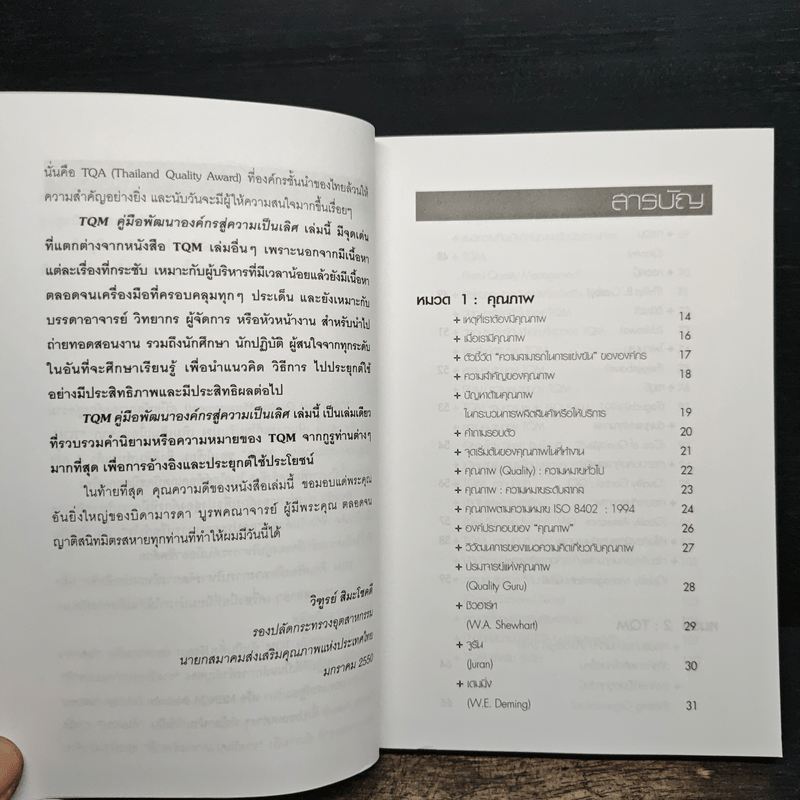 นั่นคือ TQA (Thailand Quality Award) ที่องค์กรชั้นนำของไทยล้วนให้
ความสำคัญอย่างยิ่ง และนับวันจะมีผู้ให้ความสนใจมากขึ้นเรื่อยๆ
TQM คู่มือพัฒนาองค์กรสู่ความเป็นเลิศ เล่มนี้ มีจุดเด่น
ที่แตกต่างจากหนังสือ TQM เล่มอื่นๆ เพราะนอกจากมีเนื้อหา
แต่ละเรื่องที่กระชับ เหมาะกับผู้บริหารที่มีเวลาน้อยแล้วยังมีเนื้อหา
ตลอดจนเครื่องมือที่ครอบคลุมทุกๆ ประเด็น และยังเหมาะกับ
บรรดาอาจารย์ วิทยากร ผู้จัดการ หรือหัวหน้างาน สำหรับนำไป
ถ่ายทอดสอนงาน รวมถึงนักศึกษา นักปฏิบัติ ผู้สนใจจากทุกระดับ
ในอันที่จะศึกษาเรียนรู้ เพื่อนำแนวคิด วิธีการ ไปประยุกต์ใช้
อย่างมีประสิทธิภาพและมีประสิทธิผลต่อไป
TQM คู่มือพัฒนาองค์กรสู่ความเป็นเลิศ เล่มนี้ เป็นเล่มเดียว
ที่รวบรวมคำนิยามหรือความหมายของ TQM จากกูรูท่านต่างๆ
มากที่สุด เพื่อการอ้างอิงและประยุกต์ใช้ประโยชน์
ในท้ายที่สุด คุณความดีของหนังสือเล่มนี้ ขอมอบแด่พระคุณ
อันยิ่งใหญ่ของบิดามารดา บูรพคณาจารย์ ผู้มีพระคุณ ตลอดจน
ญาติสนิทมิตรสหายทุกท่านที่ทำให้ผมมีวันนี้ได้
วิฑูรย์ สิมะโชคดี
รองปลัดกระทรวงอุตสาหกรรม
นายกสมาคมส่งเสริมคุณภาพแห่งประเทศไทย
มกราคม 2550
สารบัญ
หมวด 1 : คุณภาพ
+ เหตุที่เราต้องมีคุณภาพ 14
+ เมื่อเรามีคุณภาพ 16
+ ตัวชี้วัด "ความสามารถในการแข่งขัน" ขององค์กร 17
+ ความสำคัญของคุณภาพ 18
+ ปัญหาด้านคุณภาพ
ในกระบวนการผลิตสินค้าหรือให้บริการ 19
+ คำถามรอบตัว 20
+ จุดเริ่มต้นของคุณภาพในที่ทำงาน 21
+ คุณภาพ (Quality) : ความหมายทั่วไป 22
+ คุณภาพ : ความหมายระดับสากล 23
+ คุณภาพตามความหมาย ISO 8402 : 1994 24
+ องค์ประกอบของ "คุณภาพ" 26
+ วิวัฒนาการของแนวความคิดเกี่ยวกับคุณภาพ 27
+ ปรมาจารย์แห่งคุณภาพ
(Quality Guru) 28
+ ชิวฮาร์ท
(W.A. Shewhart) 29
+ จูรัน
(Juran) 30
+ เดมมิ่ง
(W.E. Deming) 31